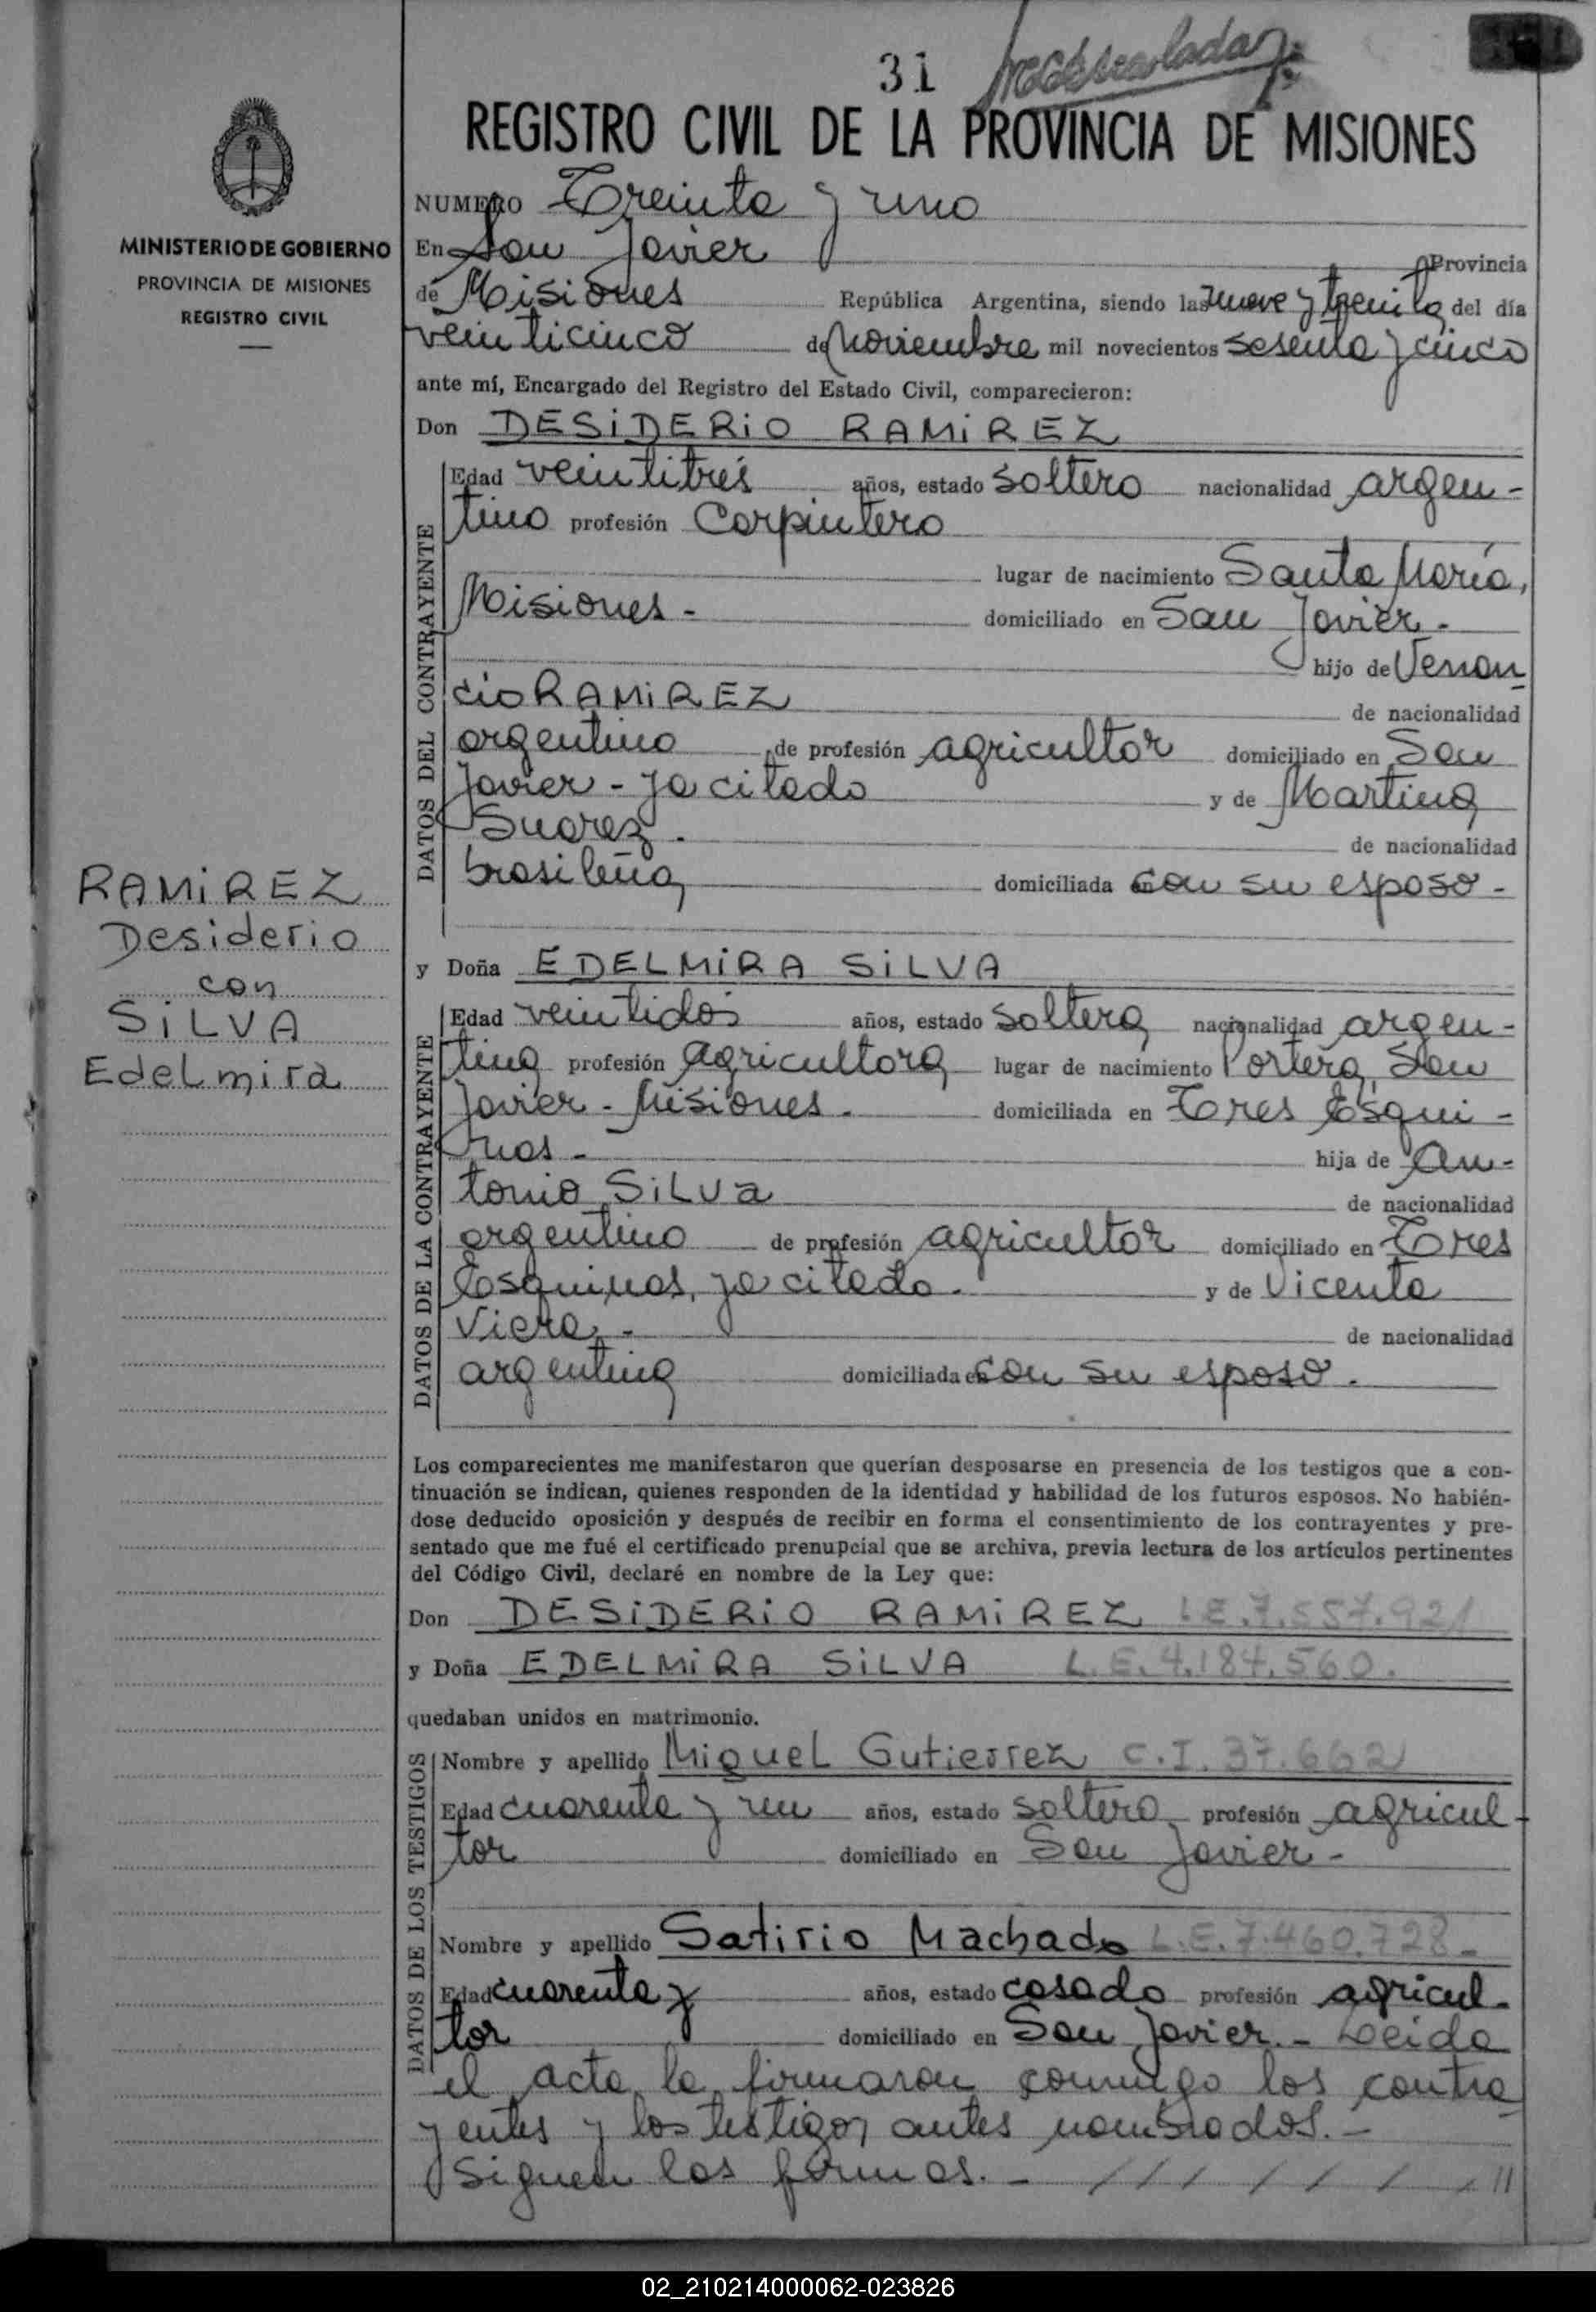 31
REGISTRO CIVIL DE LA PROVINCIA DE MISIONES
MINISTERIO DE GOBIERNO
PROVINCIA DE MISIONES
REGISTRO CIVIL
RAMIREZ
Desiderio
con
SILVA
Edelmira
NUMERO Treinta y uno
En San Javier Provincia
de Misiones República Argentina, siendo las nueve y treinta del día
veinticinco de noviembre mil novecientos sesenta y cinco
ante mí, Encargado del Registro del Estado Civil, comparecieron:
Don DESIDERIO RAMIREZ
DATOS DEL CONTRAYENTE
Edad veintitrés años, estado soltero nacionalidad argen-
tino profesión Carpintero
lugar de nacimiento Santa María,
Misiones - domiciliado en San Javier -
hijo de Venan
cio RAMIREZ de nacionalidad
argentino de profesión agricultor domiciliado en San
Javier - ya citado y de Martina
Suarez . de nacionalidad
brasileña domiciliada en con su esposo -
y Doña EDELMIRA SILVA
DATOS DE LA CONTRAYENTE
Edad veintidos años, estado soltera nacionalidad argen-
tina profesión agricultora lugar de nacimiento Portera, San
Javier - Misiones . domiciliada en Tres Esqui -
nas - hija de An-
tonio SILVA de nacionalidad
argentino de profesión agricultor domiciliado en Tres
Esquinas, ya citado . y de Vicenta
Viera - de nacionalidad
argentina domiciliada en con su esposo .
Los comparecientes me manifestaron que querían desposarse en presencia de los testigos que a con-
tinuación se indican, quienes responden de la identidad y habilidad de los futuros esposos. No habién-
dose deducido oposición y después de recibir en forma el consentimiento de los contrayentes y pre-
sentado que me fué el certificado prenupcial que se archiva, previa lectura de los artículos pertinentes
del Código Civil, declaré en nombre de la Ley que:
Don DESIDERIO RAMIREZ L.E. 7.557.921
y Doña EDELMIRA SILVA L.E. 4.184.560.
quedaban unidos en matrimonio.
DATOS DE LOS TESTIGOS
Nombre y apellido Miguel Gutierrez C.I. 37.662
Edad cuarenta y un años, estado soltero profesión agricul-
tor domiciliado en San Javier -
Nombre y apellido Satirio Machado L.E. 7.460.728 -
Edad cuarenta y años, estado casado profesión agricul-
tor domiciliado en San Javier. - Leida
el acta, la firmaron conmigo los contra
yentes y los testigos antes nombrados. -
Siguen las firmas. - / / / / / / / //
02_210214000062-023826